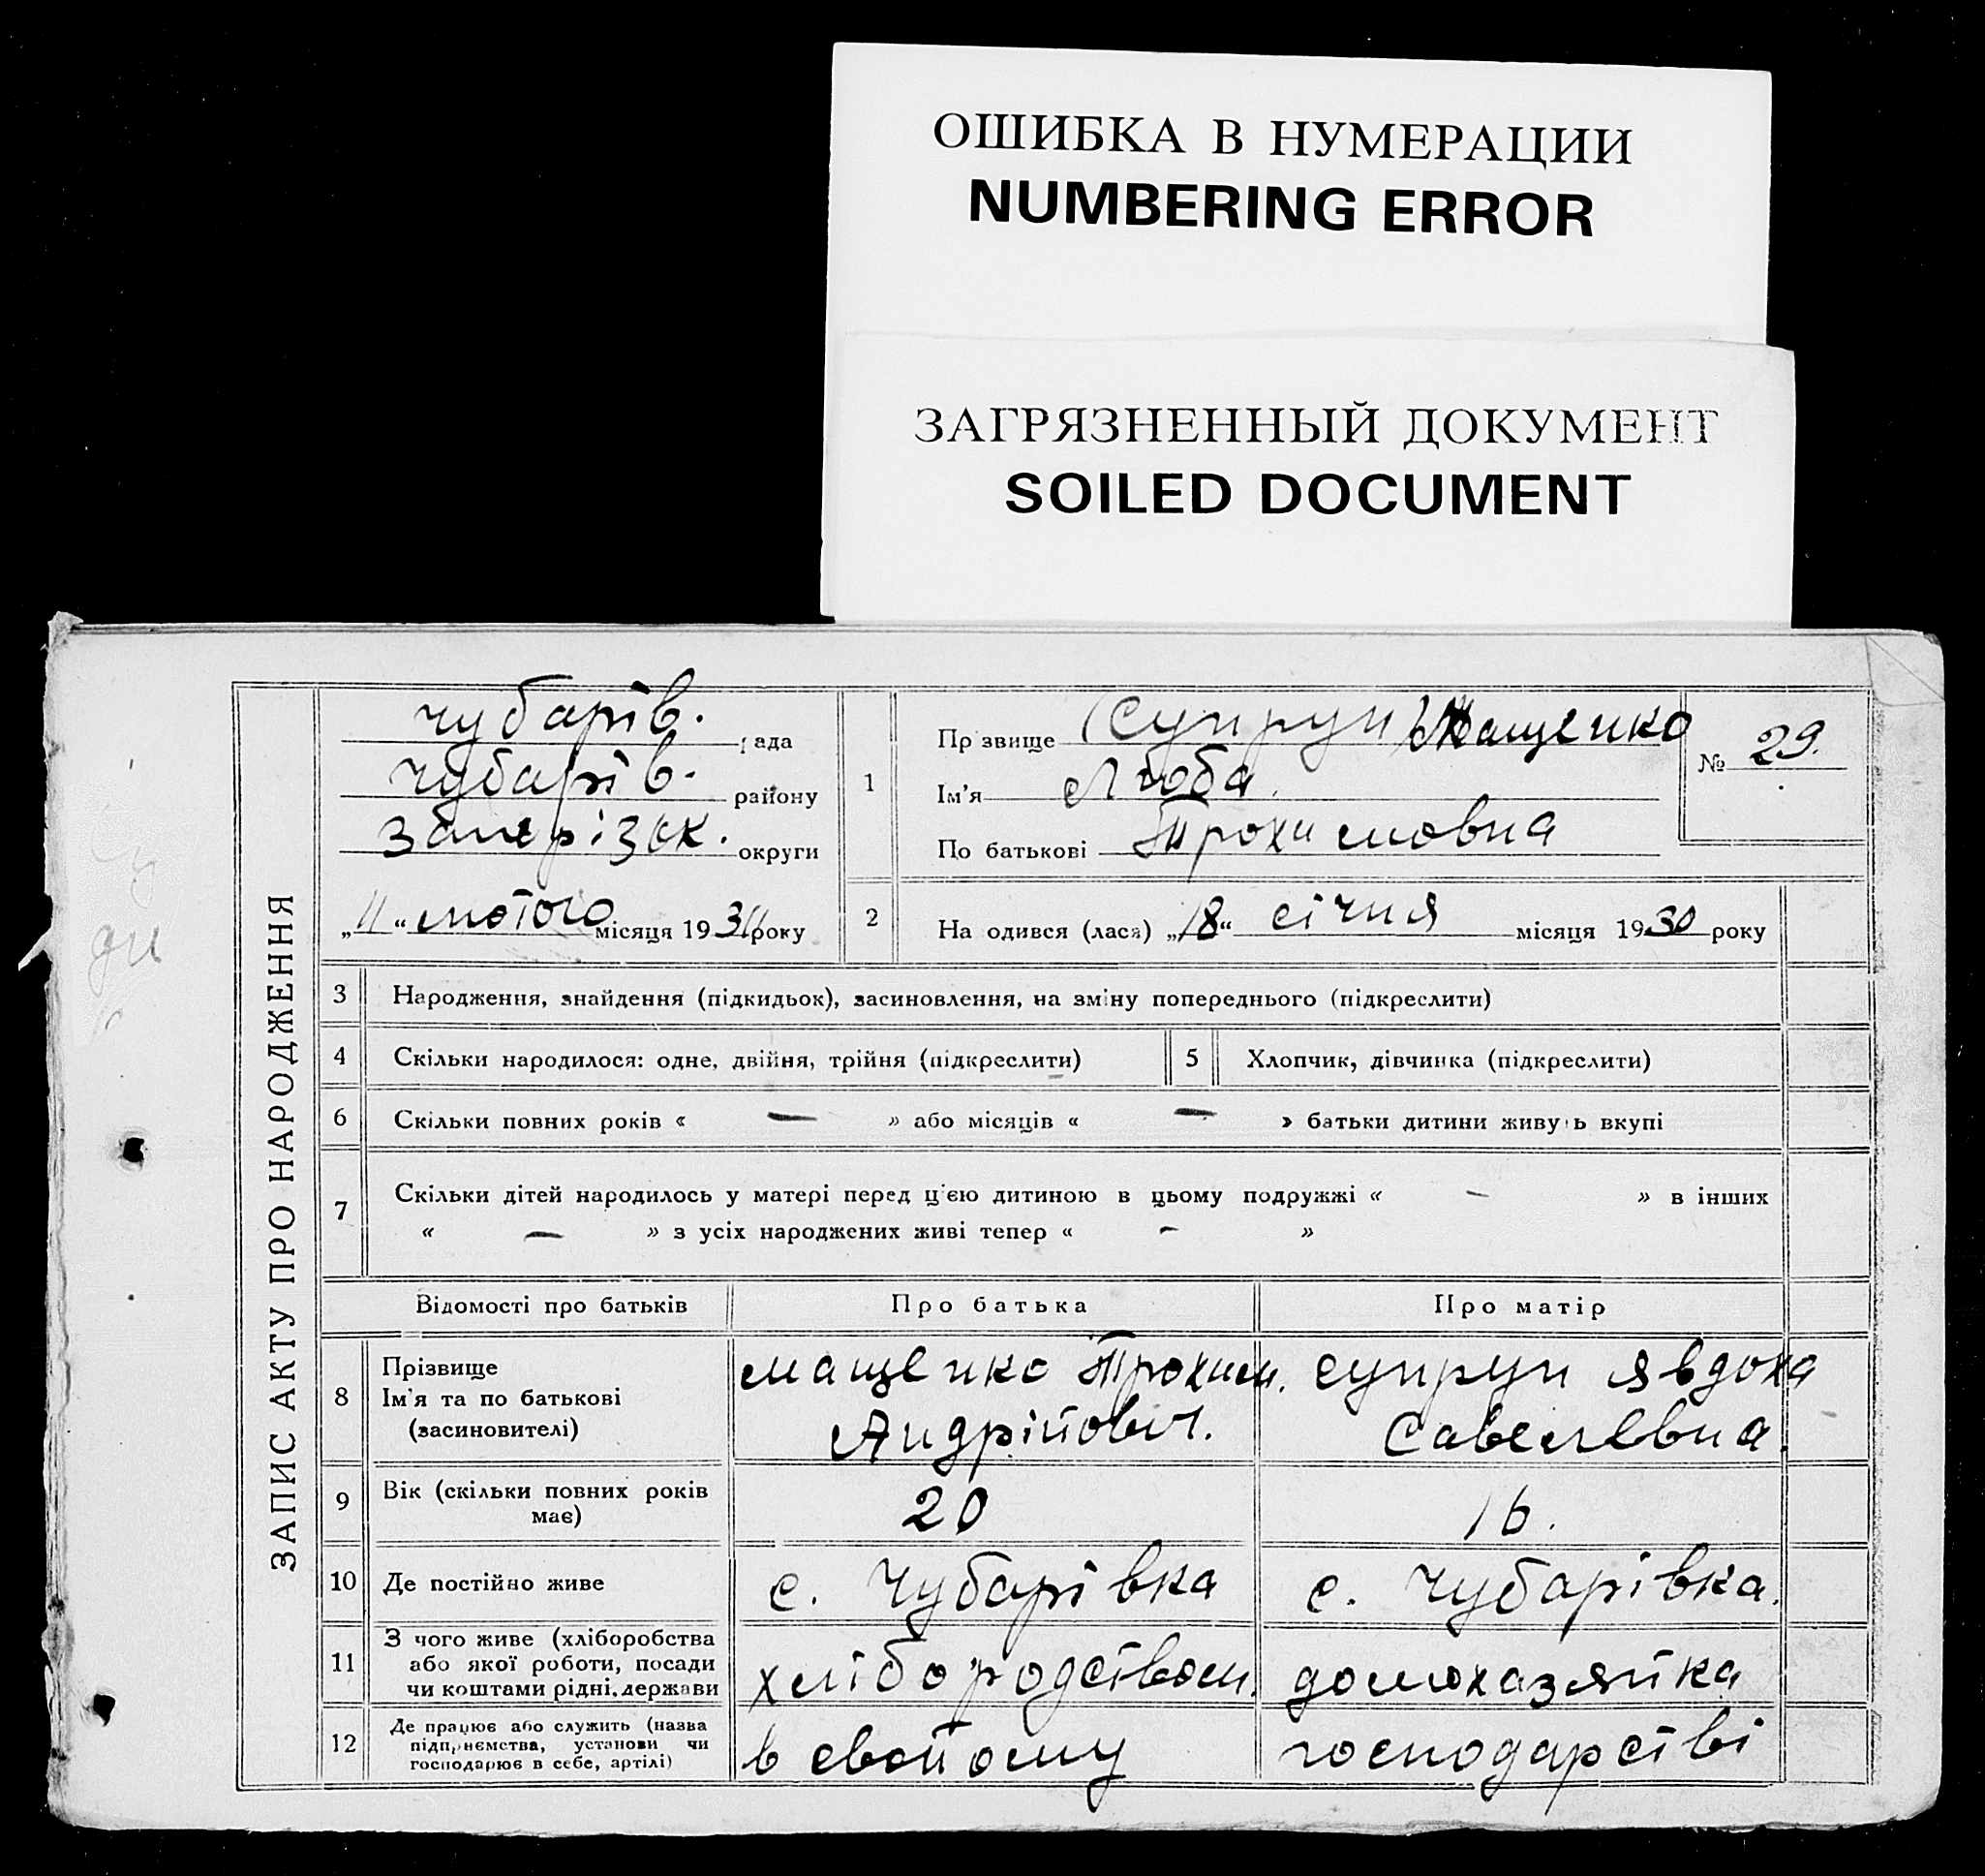 ОШИБКА В НУМЕРАЦИИ
NUMBERING ERROR
ЗАГРЯЗНЕННЫЙ ДОКУМЕНТ
SOILED DOCUMENT
ЗАПИС АКТУ ПРО НАРОДЖЕННЯ
Чубарів. рада
Чубарів. району
Запорізьк. округи
„11“ лютого місяця 1931 року
1
Прізвище (Супрун) Мащенко
Ім'я Люба.
По батькові Трохимовна
№ 29.
2 На одився (лася) „18“ січня місяця 1930 року
3 Народження, знайдення (підкидьок), засиновлення, на зміну попереднього (підкреслити)
4 Скільки народилося: одне, двійня, трійня (підкреслити) 5 Хлопчик, дівчинка (підкреслити)
6 Скільки повних років « — » або місяців « — » батьки дитини живуть вкупі
7 Скільки дітей народилось у матері перед ц'єю дитиною в цьому подружжі « – » в інших
« — » з усіх народжених живі тепер « – »
Відомості про батьків Про батька Про матір
8 Прізвище
Ім'я та по батькові
(засиновителі)
Мащенко Трохим.
Андрійович.
Супрун Явдоха
Савелевна.
9 Вік (скільки повних років
має)
20 16.
10 Де постійно живе с. Чубарівка с. Чубарівка.
11 З чого живе (хліборобства
або якої роботи, посади
чи коштами рідні, держави
хлібородством. домохазяйка
12 Де працює або служить (назва
підприємства, установи чи
господарює в себе, артілі)
в свойому господарстві